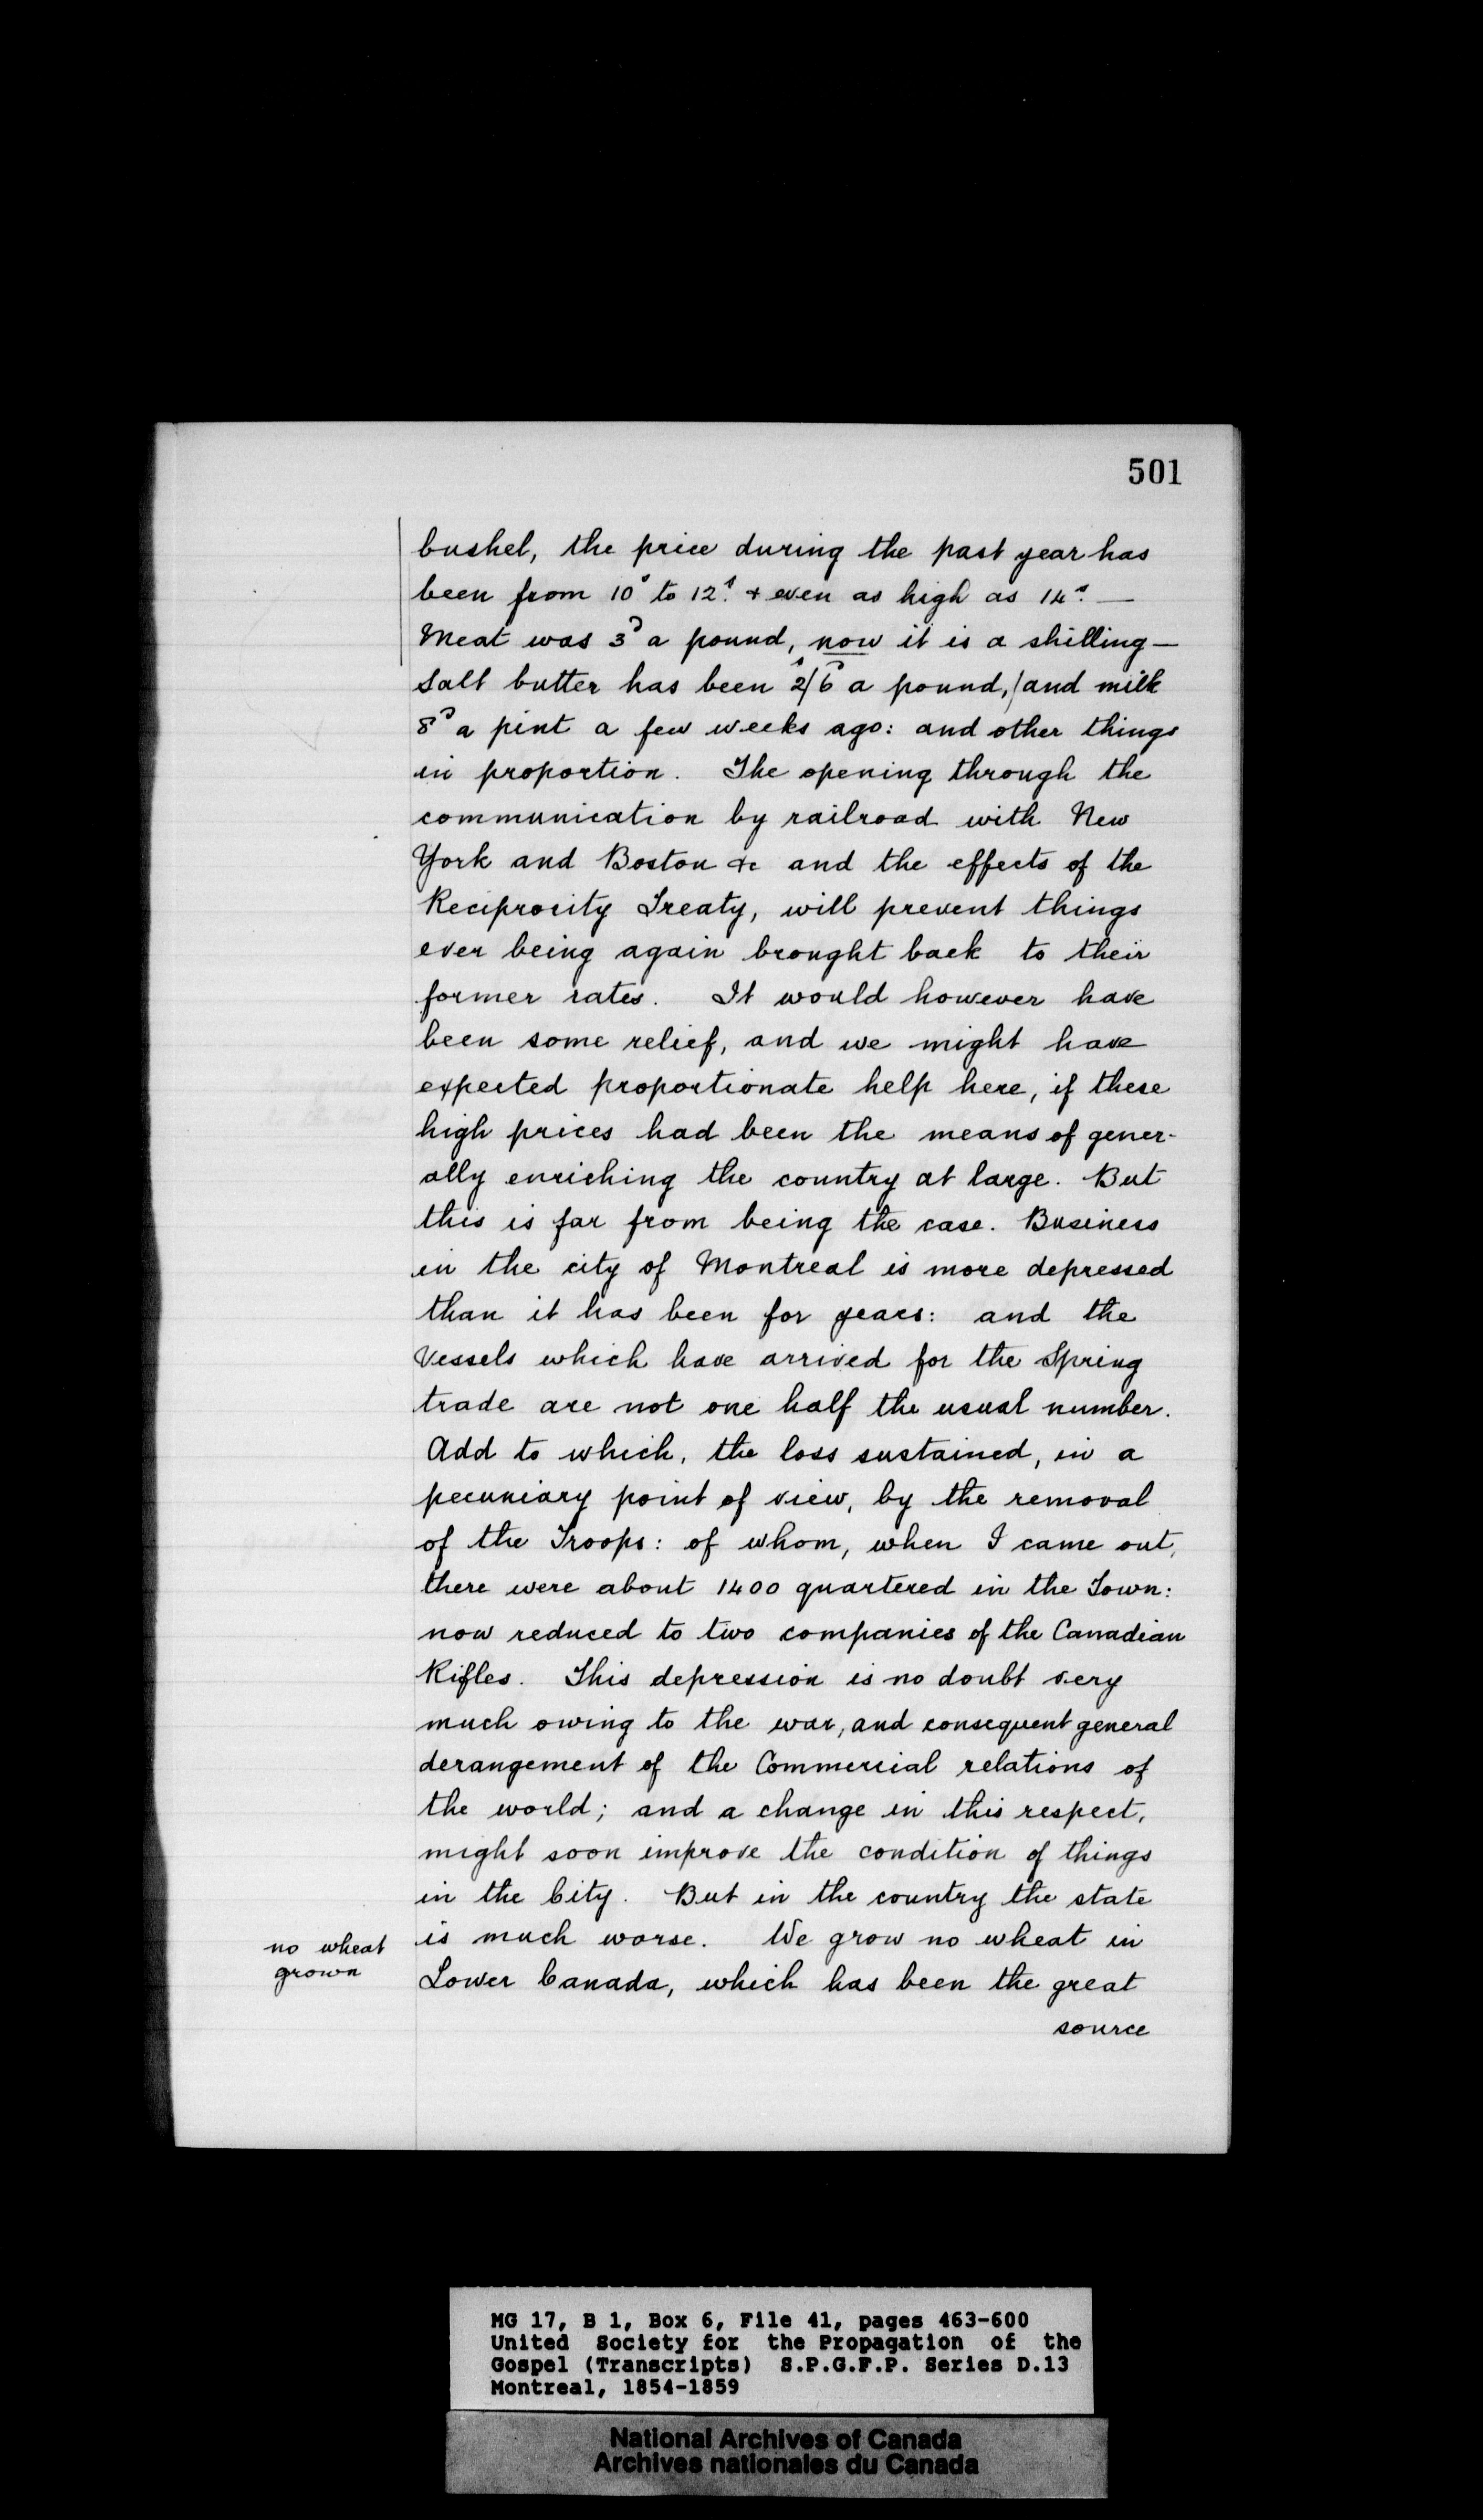 501
bushel, the price during the past year has
been from 10s to 12s. & even as high as 14s. —
Meat was 3d a pound, now it is a shilling —
Salt butter has been 2s/6d a pound, / and milk
8d a pint a few weeks ago: and other things
in proportion. The opening through the
communication by railroad with New
York and Boston &c and the effects of the
Reciprocity Treaty, will prevent things
ever being again brought back to their
former rates. It would however have
been some relief, and we might have
expected proportionate help here, if these
high prices had been the means of gener-
ally enriching the country at large. But
this is far from being the case. Business
in the city of Montreal is more depressed
than it has been for years: and the
Vessels which have arrived for the Spring
trade are not one half the usual number.
Add to which, the loss sustained, in a
pecuniary point of view, by the removal
of the Troops: of whom, when I came out,
there were about 1400 quartered in the Town:
now reduced to two companies of the Canadian
Rifles. This depression is no doubt very
much owing to the war, and consequent general
derangement of the Commercial relations of
the world; and a change in this respect,
might soon improve the condition of things
in the City. But in the country the state
is much worse. We grow no wheat in
no wheat
grown
Lower Canada, which has been the great
source
MG 17, B 1, Box 6, File 41, pages 463-600
United Society for the Propagation of the
Gospel (Transcripts) S.P.G.F.P. Series D.13
Montreal, 1854-1859
National Archives of Canada
Archives nationales du Canada